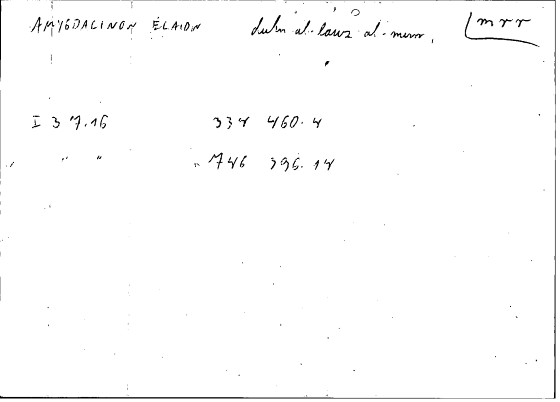 AMYGDALINON ELAION duhn al-lauz al-murr, mrr
I 37.16 334 460.4
" " " 746 396.14